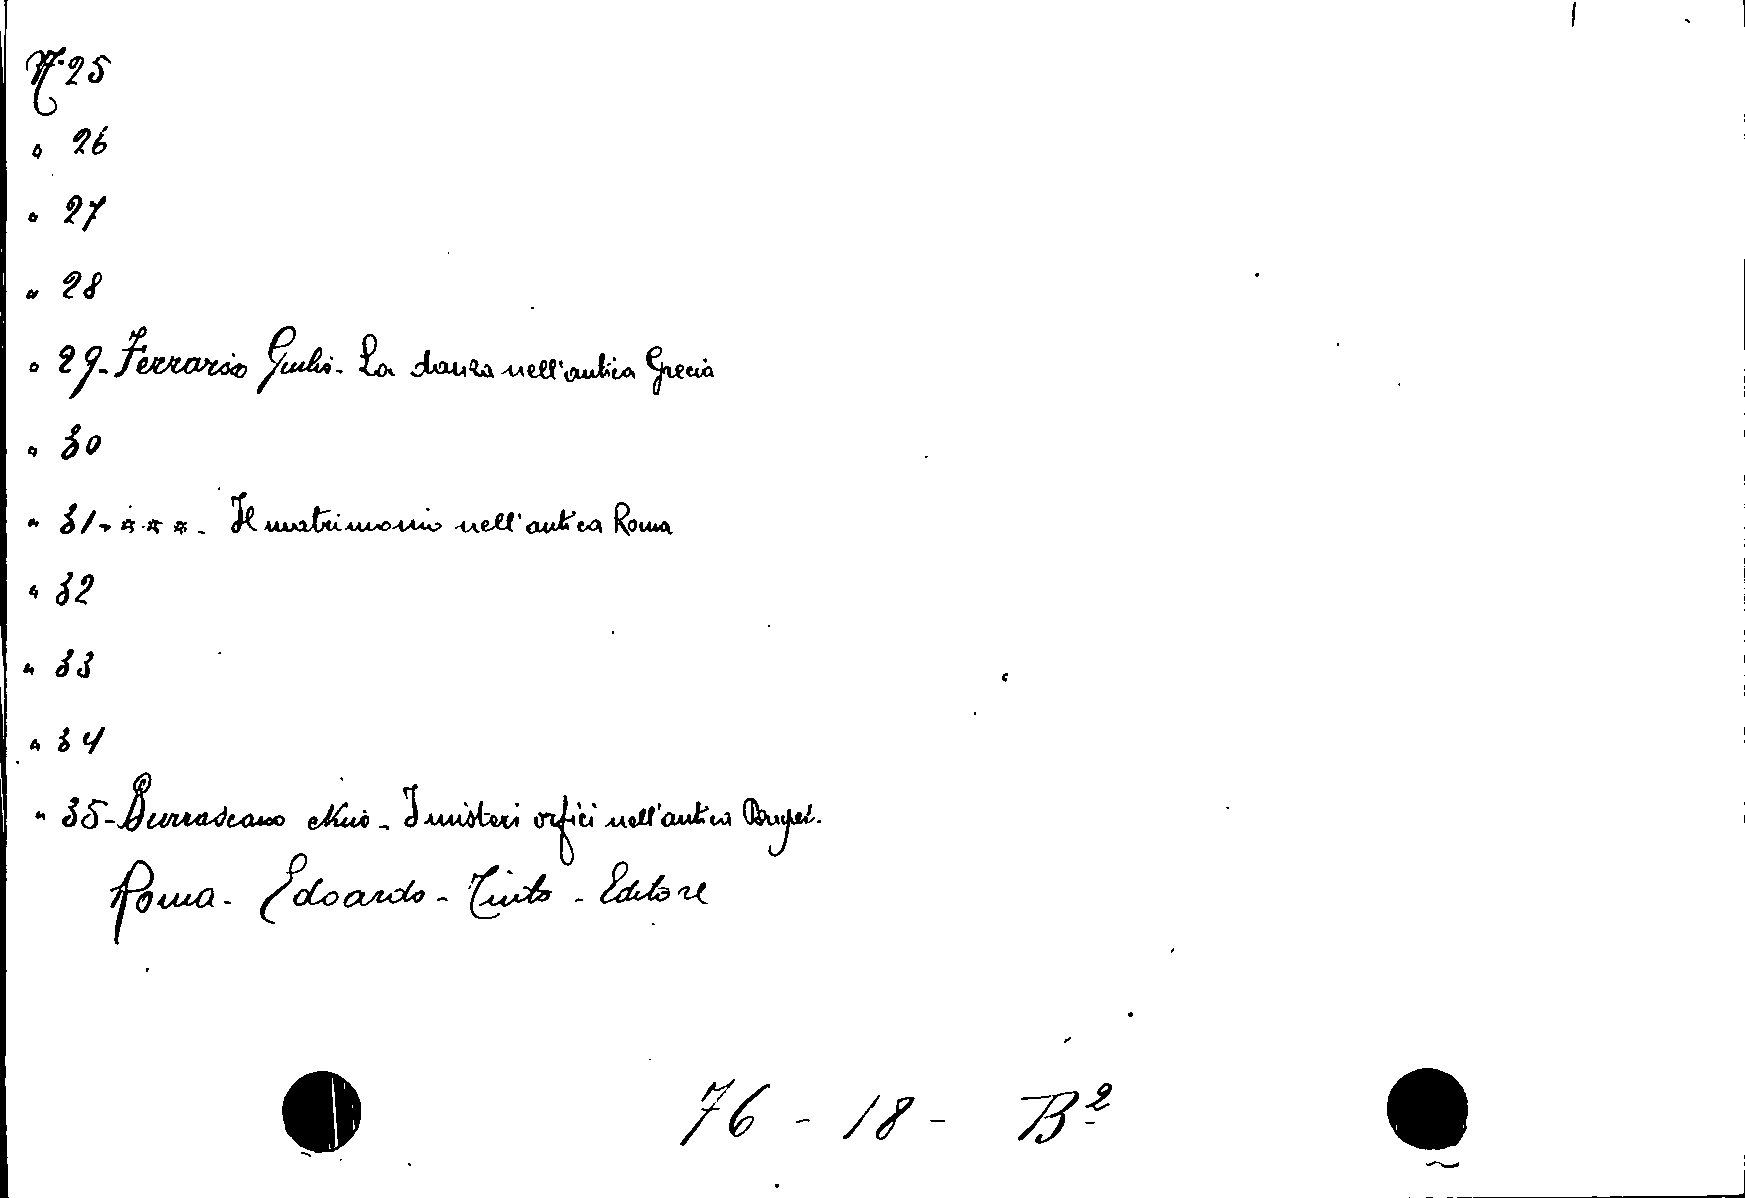 N. 25
" 26
" 27
" 28
" 29- Ferrario Giulio- La danza nell'antica Grecia
" 30
" 31- * * * - Il matrimonio nell'antica Roma
" 32
" 33
" 34
" 35- Burrascano Nino - I misteri orfici nell'antica
Roma - Edoardo - Tinto - Editore
76 - 18 - B²